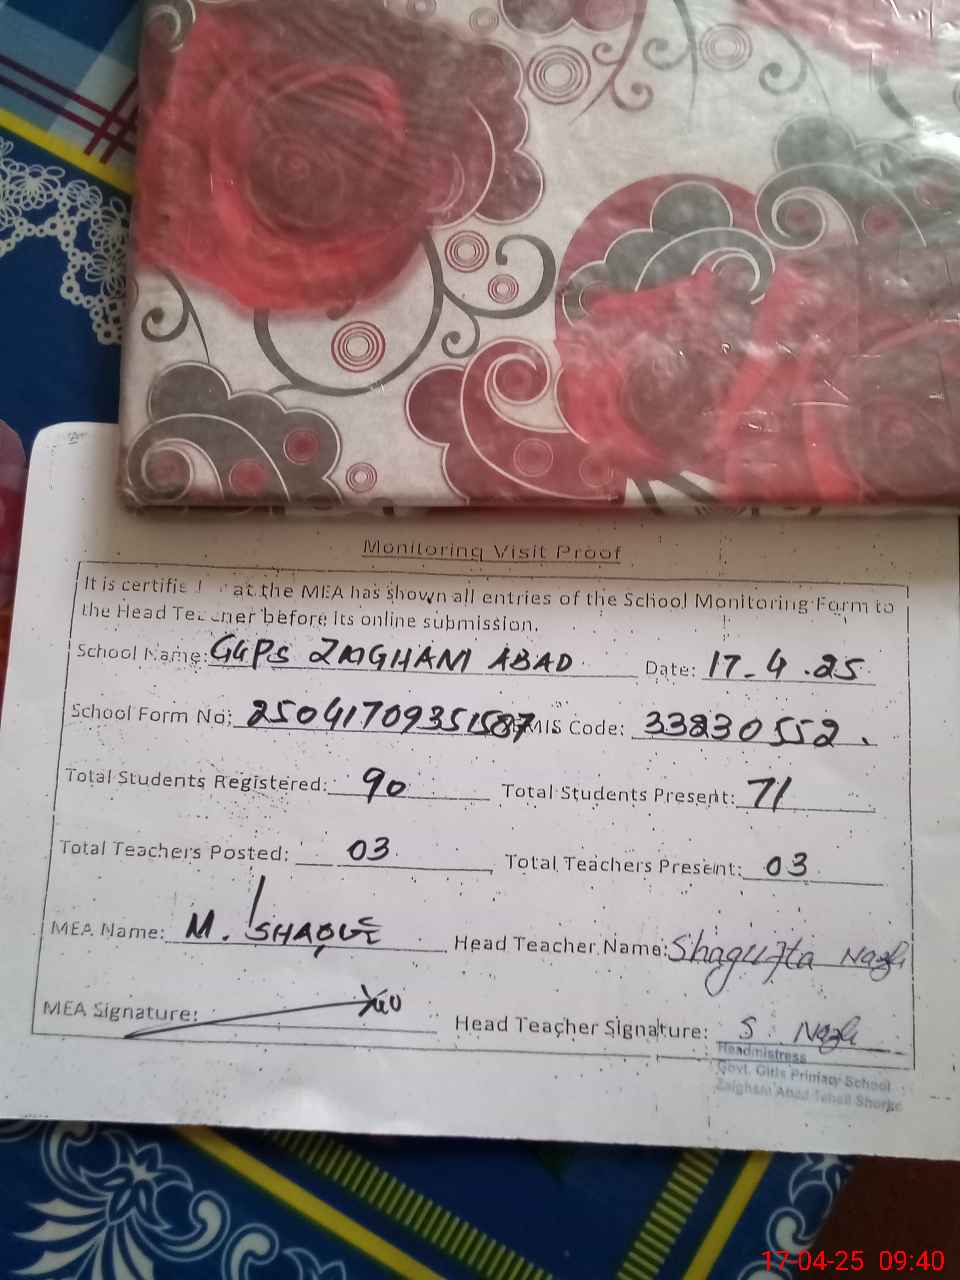 Monitoring Visit Proof
It is certified that the MEA has shown all entries of the School Monitoring Form to
the Head Teacher before its online submission.
School Name: GGPS ZAIGHAM ABAD Date: 17-4.25
School Form No: 25041709351587 EMIS Code: 33230552.
Total Students Registered: 90 Total Students Present: 71
Total Teachers Posted: 03 Total Teachers Present: 03
MEA Name: M. Head Teacher Name: Shagufta Nazli
MEA Signature: Head Teacher Signature: S Nazli
Headmistress
Govt. Girls Primary School
Zaigham Abad Tehsil
17-04-25 09:40